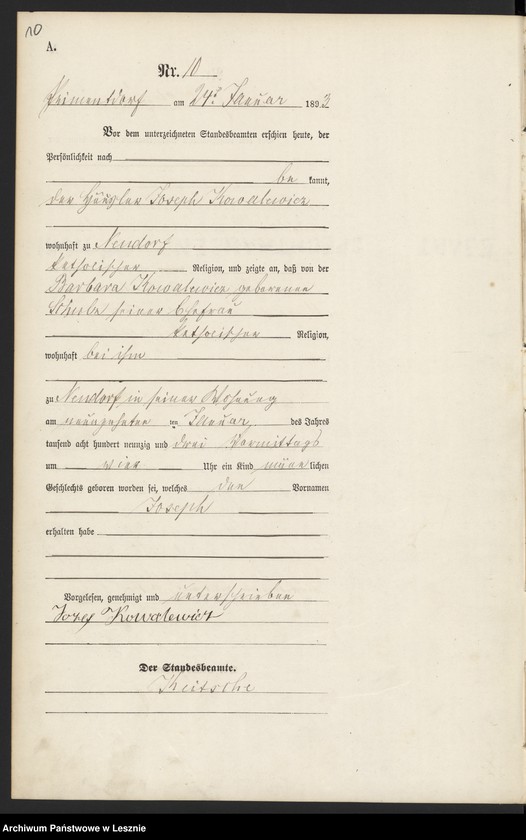 10
A.
Nr. 10
Primentdorf am 24ten Januar 1893
Vor dem unterzeichneten Standesbeamten erschien heute, der
Persönlichkeit nach
be kannt,
der Häusler Joseph Kowalewicz
wohnhaft zu Neudorf
katholischer Religion, und zeigte an, daß von der
Barbara Kowalewicz geborenen
Schulz seiner Ehefrau
katholischer Religion,
wohnhaft bei ihm
zu Neudorf in seiner Wohnung
am neunzehnten ten Januar des Jahres
tausend acht hundert neunzig und drei Vormittags
um vier Uhr ein Kind männ lichen
Geschlechts geboren worden sei, welches den Vornamen
Joseph
erhalten habe
Vorgelesen, genehmigt und unterschrieben
Jozef Kowalewicz
Der Standesbeamte.
Archiwum Państwowe w Lesznie